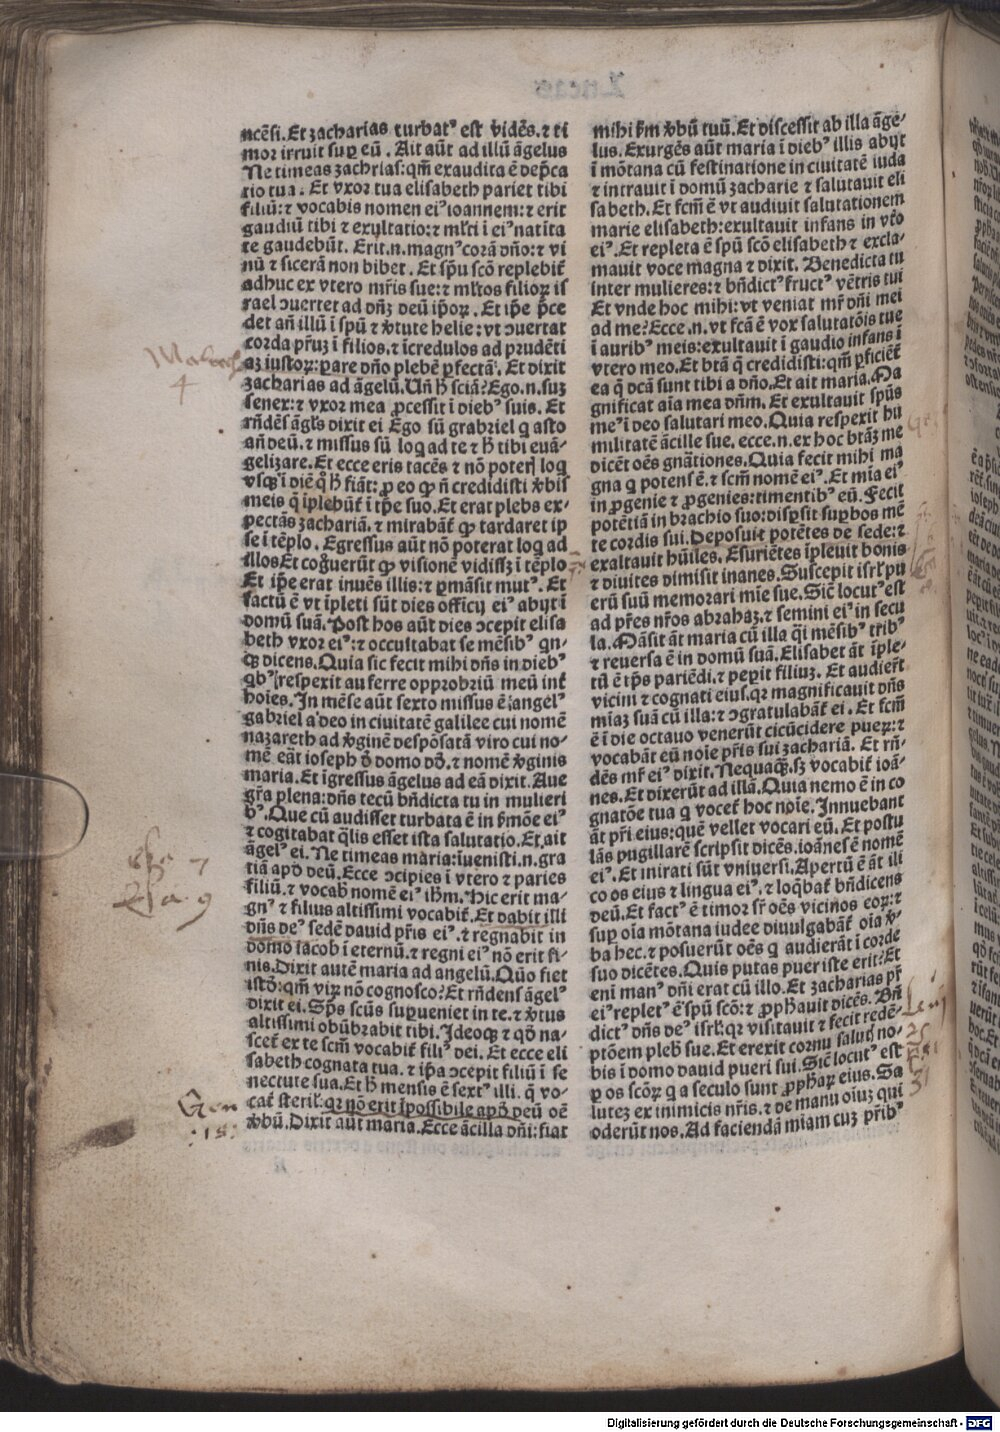 ncẽsi. Et zacharias turbatꝰ est vidẽs. ⁊ ti
mor irruit sup eũ. Ait aũt ad illũ ãgelus
Ne timeas zachrias: qm̃ exaudita ẽ dep̃ca
tio tua. Et vxor tua elisabeth pariet tibi
filiũ: ⁊ vocabis nomen eiꝰ ioannem: ⁊ erit
gaudiũ tibi ⁊ exultatio: ⁊ ml̃ti ĩ eiꝰ natita
te gaudebũt. Erit .n. magnꝰ corã dño: ⁊ vi
nũ ⁊ sicerã non bibet. Et sp̃u scõ replebit̃
adhuc ex vtero mr̃is sue: ⁊ ml̃tos filioꝝ is
rael ↄuertet ad dñ₃ deũ ip̃oꝝ. Et ip̃e p̃ce
det añ illũ ĩ sp̃u ⁊ v̾tute helie: vt ↄuertat
corda pr̃u₃ ĩ filios. ⁊ ĩcredulos ad prudẽti
a₃ iustoꝝ: ꝑare dño plebẽ ꝑfectã. Et dixit
zacharias ad ãgelũ. Uñ h̃ sciã? Ego .n. su₃
senex: ⁊ vxor mea ꝓcessit ĩ diebꝰ suis. Et
rñdẽs ãgl̃s dixit ei Ego sũ gabriel q asto
añ deũ. ⁊ missus sũ loq ad te ⁊ h̃ tibi euã-
gelizare. Et ecce eris tacẽs ⁊ nõ poteri loq
vsq₃ ĩ diẽ q̃ h̃ fiãt: ꝓ eo ꝙ ñ credidisti v̾bis
meis q̃ ĩplebũt̃ ĩ tp̃e suo. Et erat plebs ex-
pectãs zachariã. ⁊ mirabãt̃ ꝙ tardaret ip
se ĩ tẽplo. Egressus aũt nõ poterat loq ad
illos Et cogⁿuerũt ꝙ visionẽ vidiss₃ ĩ tẽplo
Et ip̃e erat innuẽs illis: ⁊ ꝑmãsit mutꝰ. Et
factũ ẽ vt ĩpleti sũt dies officij eiꝰ abijt ĩ
domũ suã. Post hos aũt dies ↄcepit elisa
beth vxor eiꝰ: ⁊ occultabat se mẽsibꝰ qn-
q₃ dicens. Quia sic fecit mihi dñs in diebꝰ
qbꝰ respexit auferre opprobriũ meũ int̃
hoĩes. In mẽse aũt sexto missus ẽ angelꝰ
gabriel a deo in ciuitatẽ galilee cui nomẽ
nazareth ad v̾ginẽ despõsatã viro cui no-
mẽ eãt ioseph d̾ domo dd̾. ⁊ nomẽ v̾ginis
maria. Et ĩgressus ãgelus ad eã dixit. Aue
gr̃a plena: dñs tecũ bñdicta tu in mulieri
bꝰ. Que cũ audisset turbata ẽ in ẜmõe eiꝰ
⁊ cogitabat q̃lis esset ista salutatio. Et ait
ãgelꝰ ei. Ne timeas maria: ĩuenisti .n. gra
tiã apd̾ deũ. Ecce ↄcipies ĩ vtero ⁊ paries
filiũ. ⁊ vocabi nomẽ eiꝰ ih̃m. Hic erit ma-
gnꝰ ⁊ filius altissimi vocabit̃. Et dabit illi
dñs deꝰ sedẽ dauid pr̃is eiꝰ. ⁊ regnabit in
domo iacob ĩ eternũ. ⁊ regni eiꝰ nõ erit fi-
nis. Dixit autẽ maria ad angelũ. Quõ fiet
istõ: qm̃ viꝝ nõ cognosco? Et rñdens ãgelꝰ
dixit ei. Sp̃s scũs supueniet in te. ⁊ v̾tus
altissimi obũbrabit tibi. Ideoq₃ ⁊ qd̾ na-
scet̃ ex te scm̃ vocabit̃ filiꝰ dei. Et ecce eli
sabeth cognata tua. ⁊ ip̃a ↄcepit filiũ ĩ se
nectute sua. Et h̃ mensis ẽ sextꝰ illi. q̃ vo-
cat̃ steril: qꝛ nõ erit ĩpossibile apd̾ deũ oẽ
v̾bũ. Dixit aũt maria. Ecce ãcilla dñi: fiat
mihi ẜm v̾bũ tuũ. Et discessit ab illa ãge-
lus. Exurgẽs aũt maria ĩ diebꝰ illis abijt
ĩ mõtana cũ festinatione in ciuitatẽ iuda
⁊ intrauit ĩ domũ zacharie ⁊ salutauit eli
sabeth. Et fcm̃ ẽ vt audiuit salutationem
marie elisabeth: exultauit infans in vt̃o
eiꝰ. Et repleta ẽ sp̃u scõ elisabeth ⁊ excla-
mauit voce magna ⁊ dixit. Benedicta tu
inter mulieres: ⁊ bñdictꝰ fructꝰ vẽtris tui
Et vnde hoc mihi: vt veniat mr̃ dñi mei
ad me? Ecce .n. vt fcã ẽ vox salutatõis tue
ĩ auribꝰ meis: exultauit ĩ gaudio infans ĩ
vtero meo. Et btã q̃ credidisti: qm̃ ꝑficiẽt̃
ea q̃ dcã sunt tibi a dño. Et ait maria. Ma
gnificat aĩa mea dñm. Et exultauit sp̃us
meꝰ ĩ deo salutari meo. Quia respexit hu
militatẽ ãcille sue. ecce .n. ex hoc btã₃ me
dicẽt oẽs gnãtiones. Quia fecit mihi ma
gna q potens ẽ. ⁊ scm̃ nomẽ eiꝰ. Et mĩa eiꝰ
in ꝓgenie ⁊ ꝓgenies: timentibꝰ eũ. Fecit
potẽtiã in brachio suo: disꝑsit supbos mẽ
te cordis sui. Deposuit potẽtes de sede: ⁊
exaltauit hũiles. Esuriẽtes ĩpleuit bonis
⁊ diuites dimisit inanes. Suscepit isrl̃ pu
erũ suũ memorari mĩe sue. Sic̃ locutꝰ est
ad pr̃es nr̃os abraha₃. ⁊ semini eiꝰ in secu
la. Mãsit ãt maria cũ illa q̃i mẽsibꝰ tribꝰ
⁊ reuersa ẽ in domũ suã. Elisabet ãt ĩple-
tũ ẽ tp̃s pariẽdi. ⁊ peꝑit filiu₃. Et audier̃t
vicini ⁊ cognati eius. qꝛ magnificauit dñs
mĩa₃ suã cũ illa: ⁊ ↄgratulabãt̃ ei. Et fcm̃
ẽ ĩ die octauo venerũt cicũcidere pueꝝ: ⁊
vocabãt eũ noĩe pr̃is sui zachariã. Et rñ-
dẽs mr̃ eiꝰ dixit. Nequaq₃. s₃ vocabit̃ ioã-
nes. Et dixerũt ad illã. Quia nemo ẽ in co
gnatõe tua q vocet̃ hoc noĩe. Innuebant
ãt pr̃i eius: quẽ vellet vocari eũ. Et postu
lãs pugillarẽ scripsit dicẽs. ioãnes ẽ nomẽ
eiꝰ. Et mirati sũt vniuersi. Apertũ ẽ ãt ili
co os eius ⁊ lingua eiꝰ. ⁊ loq̃bat̃ bñdicens
deũ. Et factꝰ ẽ timor sr̃ oẽs vicinos eoꝝ: ⁊
sup oĩa mõtana iudee diuulgabãt̃ oĩa v̾-
ba hec. ⁊ posuerũt oẽs q audierãt ĩ corde
suo dicẽtes. Quis putas puer iste erit? Et
eni manꝰ dñi erat cũ illo. Et zacharias pr̃
eiꝰ repletꝰ ẽ sp̃u scõ: ⁊ ꝓph̃auit dicẽs. Bñ
dictꝰ dñs deꝰ isrl̃: qꝛ visitauit ⁊ fecit redẽ-
ptõem plebi sue. Et erexit cornu saluti no-
bis ĩ domo dauid pueri sui. Sic̃ locutꝰ est
ꝑ os scõꝝ q a seculo sunt ꝓph̃aꝝ eius. Sa
lutez ex inimicis nr̃is. ⁊ de manu oĩuz qui
oderũt nos. Ad faciendã miam cuz pr̃ibꝰ
4
Esa 9
Gen
18
Digitalisierung gefördert durch die Deutsche Forschungsgemeinschaft - DFG